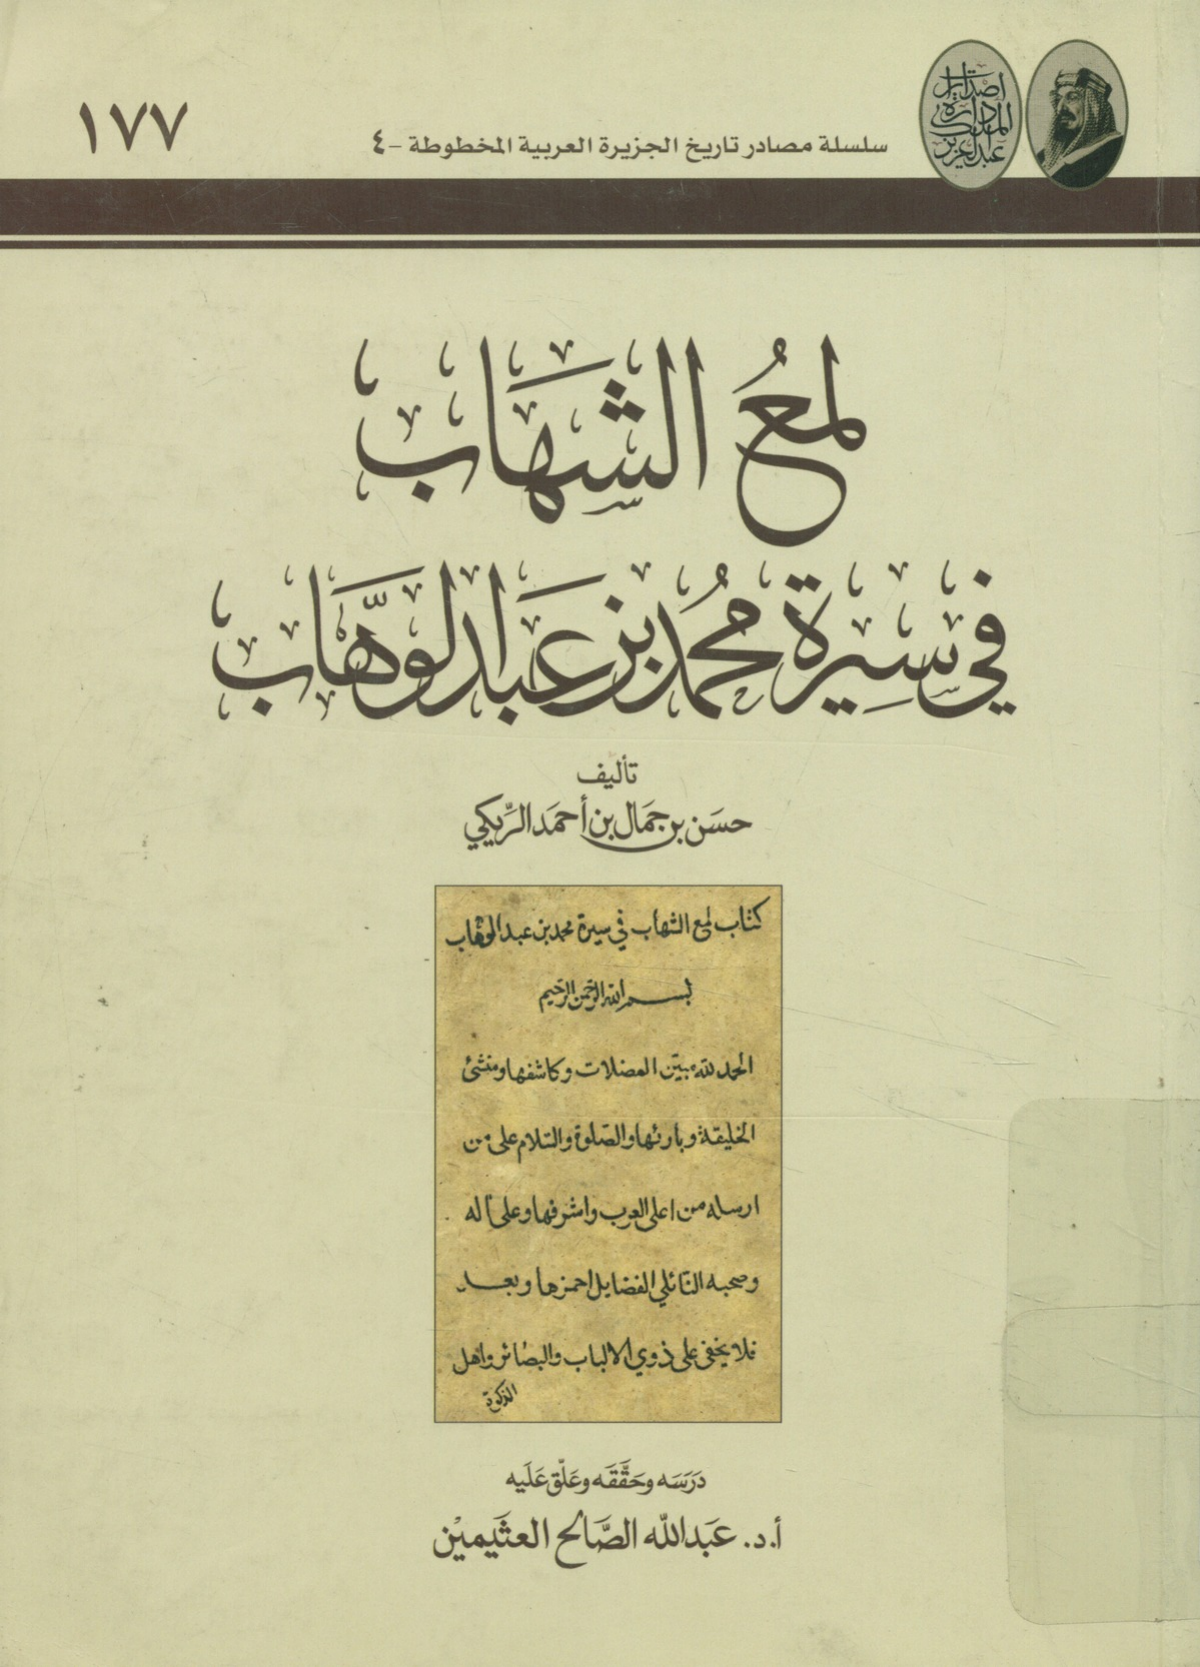 إصدارات
الدارة
الملك
عبدالعزيز
سلسلة مصادر تاريخ الجزيرة العربية المخطوطة -٤
١٧٧
لمعُ الشهَاب
في سيرة محُمد بن عَبد الوهَّاب
تأليف
حسَن بن جمَال بن أحمَد الرِّيكي
كتاب لمع الشهاب في سيرة محمد بن عبد الوهاب
بسم الله الرحمن الرحيم
الحمد لله مبيّن المعضلات وكاشفها ومنشئ
الخليقة وبارئها والصلوة والسّلام على من
ارساله من اعلى العرب واشرفها وعلى اله
وصحبه النائلي الفضايل احمزها وبعد
فلا يخفى على ذوي الالباب والبصائر واهل
الذكوة
دَرَسَه وحَقَّقَه وعَلّق عَلَيه
أ. د. عبَدالله الصَّالح العثيَميْن